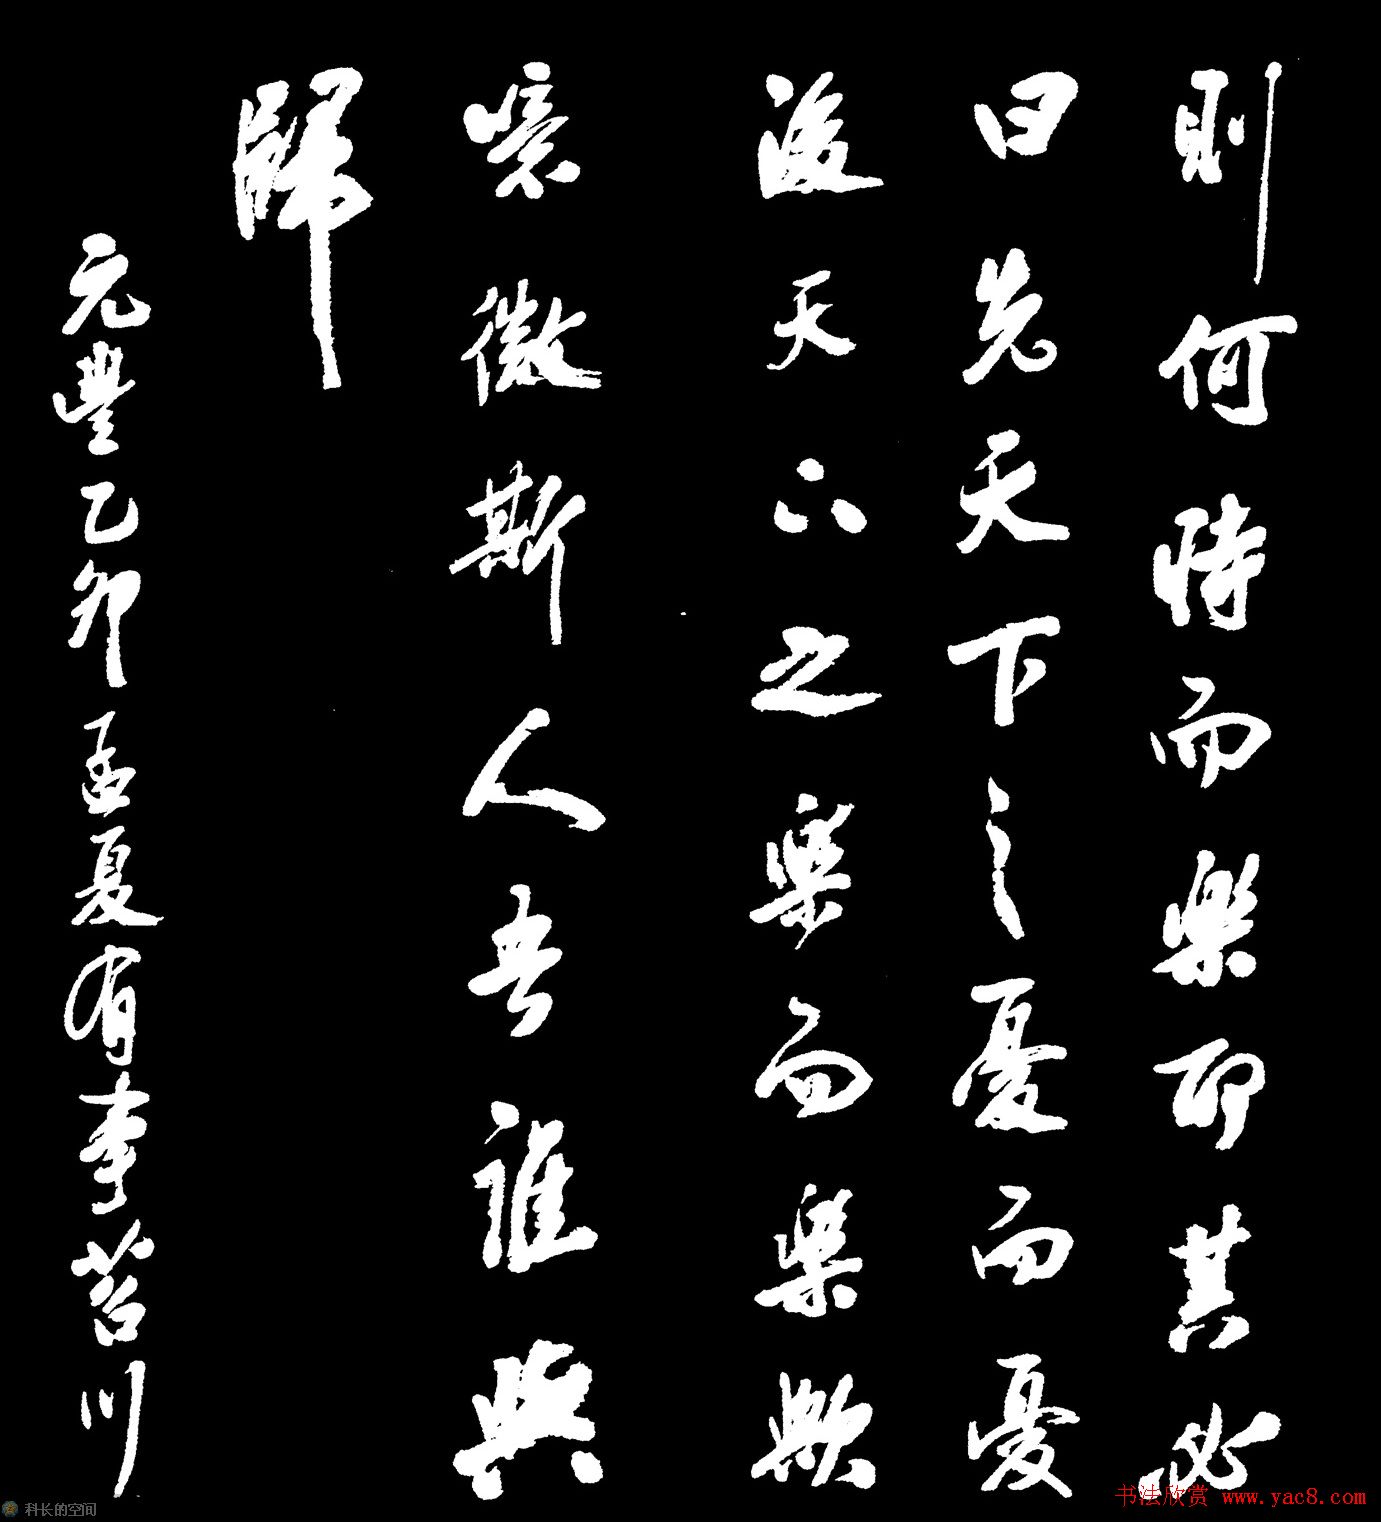 則何時而樂耶其必
曰先天下之憂而憂
後天下之樂而樂歟
噫微斯人吾誰與
歸
元豐乙卯孟夏有事苕川
书法欣赏 www.yac8.com
科长的空间